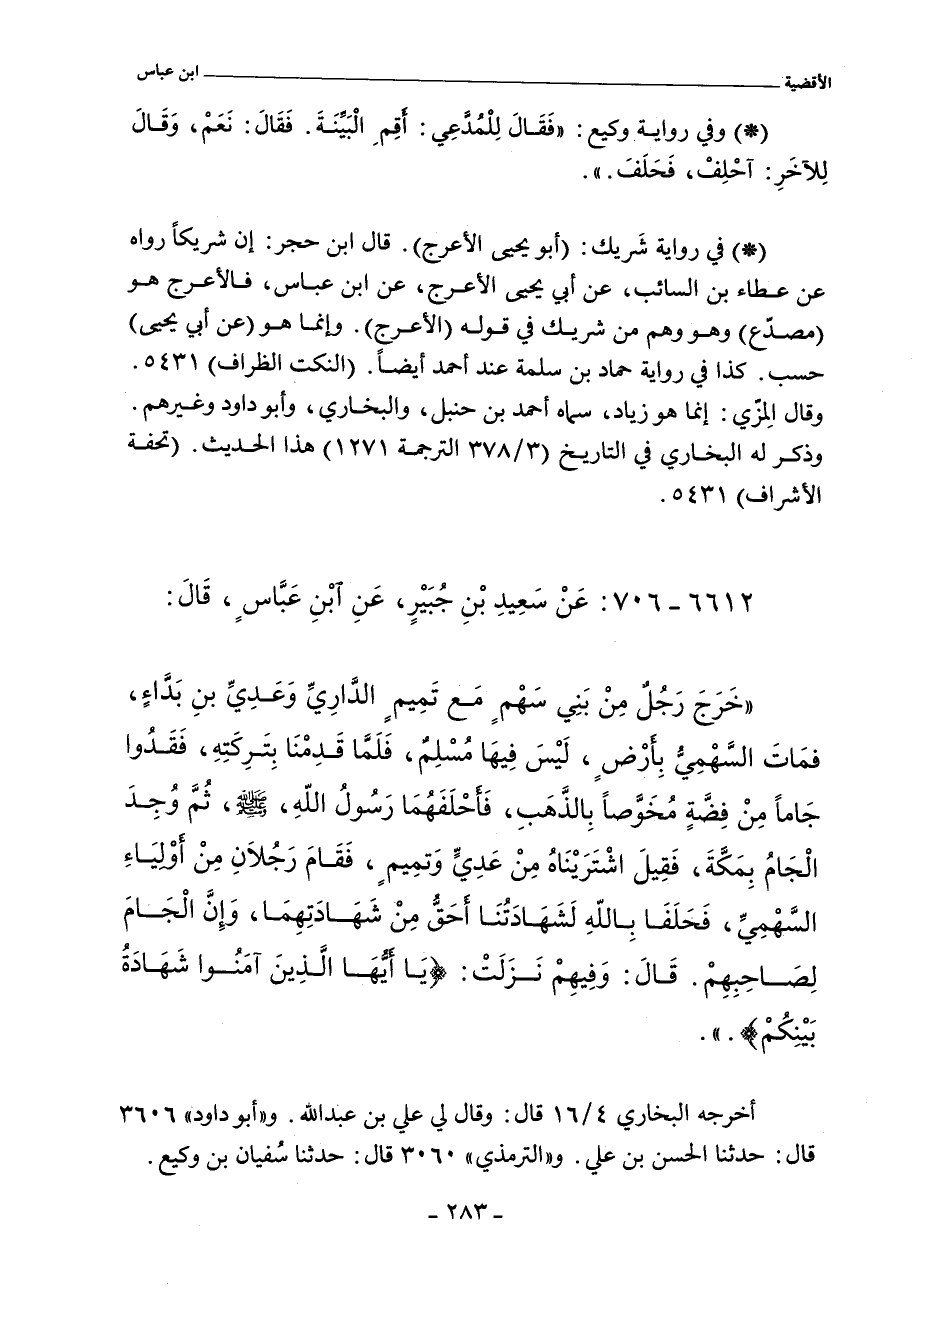 الأقضية ــــــ ابن عباس
(*) وفي رواية وكيع: «فَقَالَ لِلْمُدَّعِي: أَقِمِ الْبَيِّنَةَ. فَقَالَ: نَعَمْ، وَقَالَ
لِلآخَرِ: آحْلِفْ، فَحَلَفَ.».
(*) في رواية شَريك: (أبو يحيى الأعرج). قال ابن حجر: إن شريكاً رواه
عن عطاء بن السائب، عن أبي يحيى الأعرج، عن ابن عباس، فالأعرج هو
(مصدّع) وهو وهم من شريك في قوله (الأعرج). وإنما هو (عن أبي يحيى)
حسب. كذا في رواية حماد بن سلمة عند أحمد أيضاً. (النكت الظراف) ٥٤٣١.
وقال المِزّي: إنما هو زياد، سماه أحمد بن حنبل، والبخاري، وأبو داود وغيرهم.
وذكر له البخاري في التاريخ (٣٧٨/٣ الترجمة ١٢٧١) هذا الحديث. (تحفة
الأشراف) ٥٤٣١.
٦٦١٢ - ٧٠٦: عَنْ سَعِيدِ بْنِ جُبَيْرٍ، عَنِ آبْنِ عَبَّاسٍ، قَالَ:
«خَرَجَ رَجُلٌ مِنْ بَنِي سَهْمٍ مَع تَمِيمٍ الدَّارِيِّ وَعَدِيِّ بنِ بَدَّاءٍ،
فمَاتَ السَّهْمِيُّ بِأَرْضٍ، لَيْسَ فِيهَا مُسْلِمٌ، فَلَمَّا قَدِمْنَا بِتَرِكَتِهِ، فَقَدُوا
جَاماً مِنْ فِضَّةٍ مُخَوَّصاً بِالذَّهَبِ، فَأَحْلَفَهُمَا رَسُولُ اللّهِ، ﷺ، ثُمَّ وُجِدَ
الْجَامُ بِمَكَّةَ، فَقِيلَ اشْتَرَيْنَاهُ مِنْ عَدِيٍّ وَتمِيمٍ، فَقَامَ رَجُلاَنِ مِنْ أَوْلِيَاءِ
السَّهْمِيِّ، فَحَلَفَا بِاللّهِ لَشَهَادَتُنَا أَحَقُّ مِنْ شَهَادَتِهِمَا، وَإِنَّ الْجَامَ
لِصَاحِبِهِمْ. قَالَ: وَفِيهِمْ نَزَلَتْ: ﴿يَا أَيُّهَا الَّذِينَ آمَنُوا شَهَادَةُ
بَيْنِكُمْ﴾.».
أخرجه البخاري ١٦/٤ قال: وقال لي علي بن عبدالله. و«أبو داود» ٣٦٠٦
قال: حدثنا الحسن بن علي. و«الترمذي» ٣٠٦٠ قال: حدثنا سُفيان بن وكيع.
- ٢٨٣ -